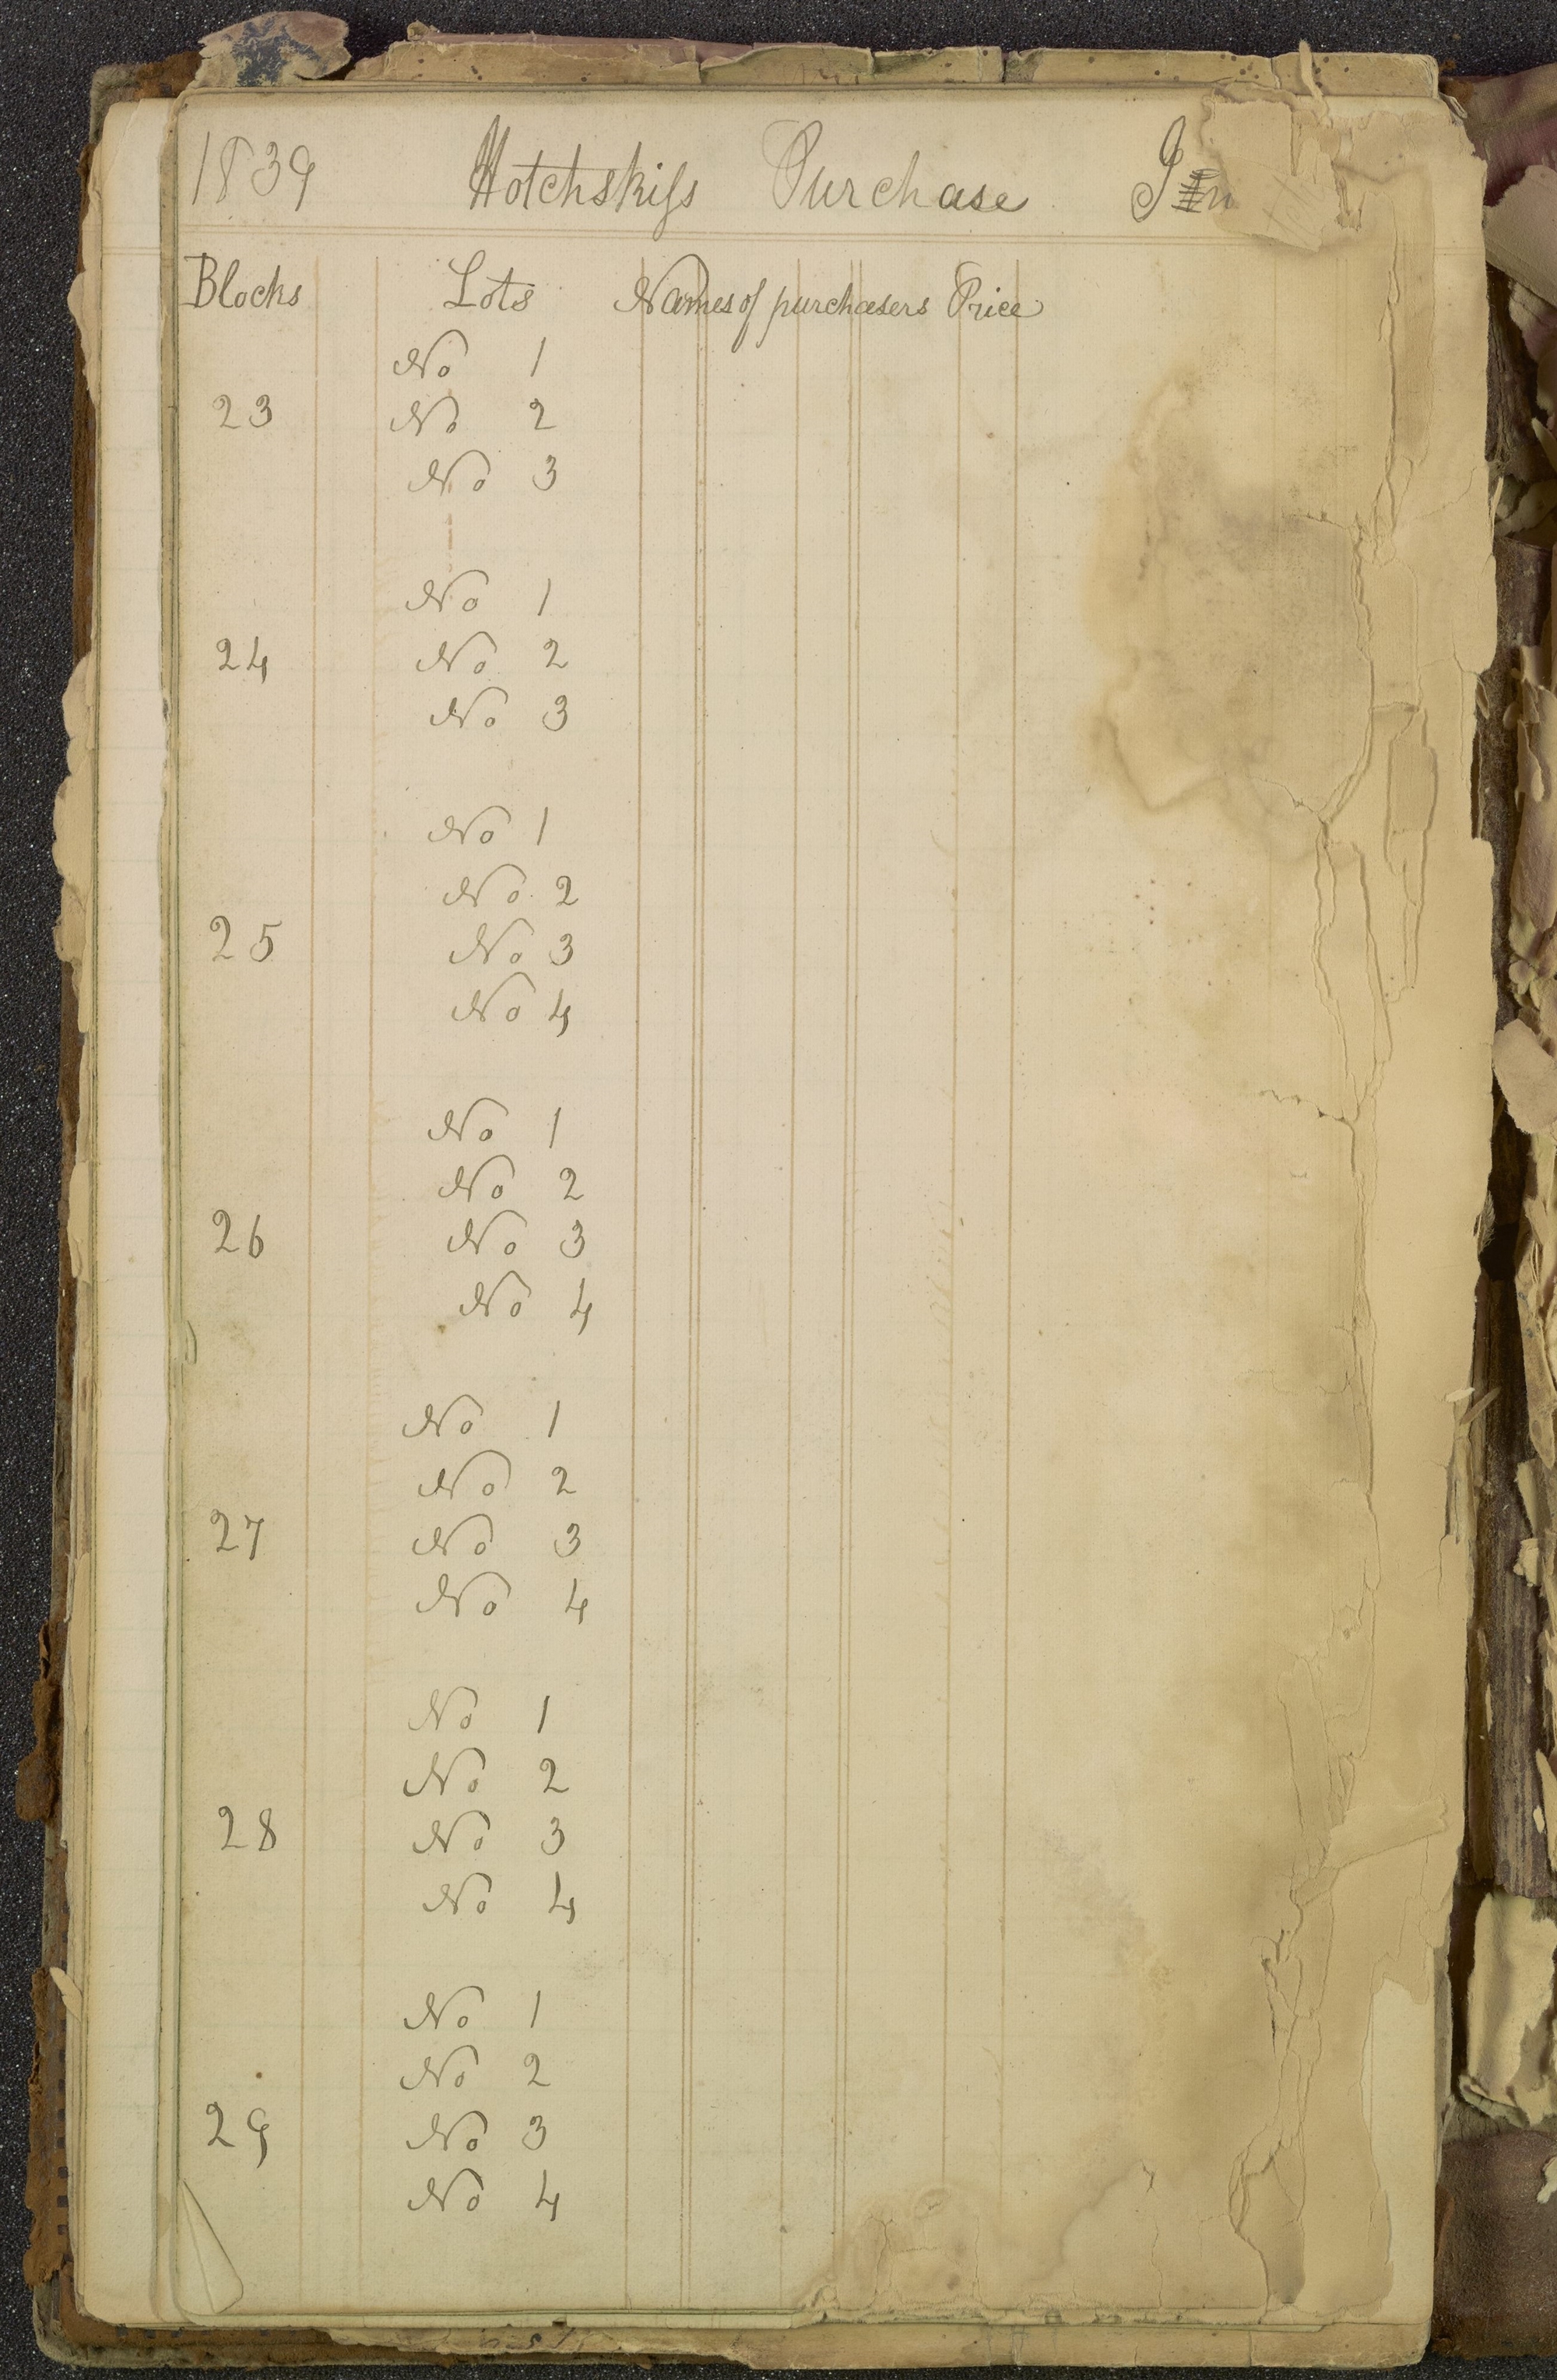 1839 Hotchskiss Purchase
Blocks Lots Names of purchasers Price
No 1
23 No 2
No 3
No 1
24 No 2
No 3
No 1
No 2
25 No 3
No 4
No 1
No 2
26 No 3
No 4
No 1
No 2
27 No 3
No 4
No 1
No 2
28 No 3
No 4
No 1
No 2
29 No 3
No 4